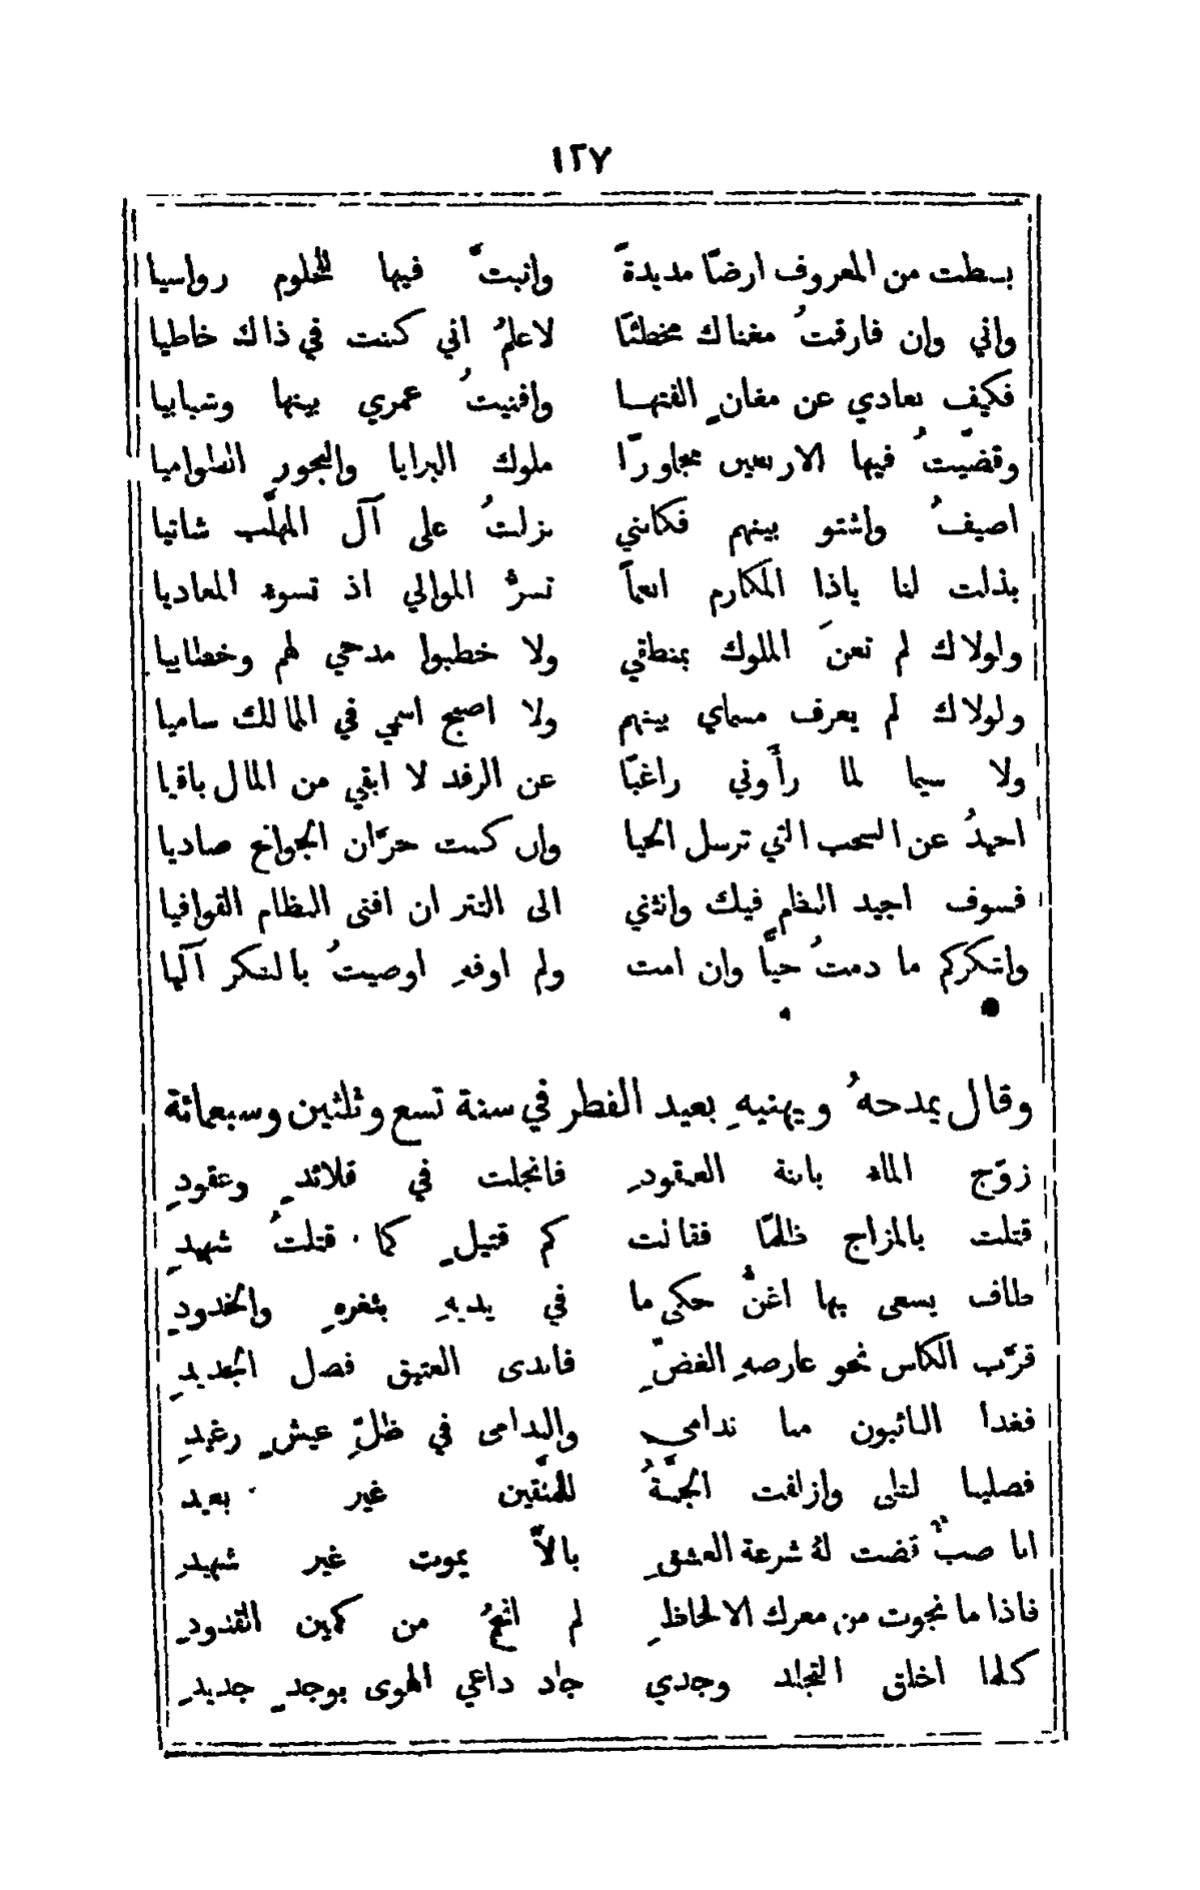 ١٢٧
بسطت من المعروف ارضًا مديدةً وانبتَّ فيها للحلوم رواسيا
واني وان فارقتُ مغناك مخطئًا لاعلمُ اني كنت في ذاك خاطيا
فكيف بعادي عن مغانٍ الفتها وافنيتُ عمري بينها وشبابيا
وقضّيتُ فيها الاربعين مجاورًا ملوك البرايا والبحورِ الطواميا
اصيفُ واشتو بينهم فكانني نزلتُ على آل المهلَّب شاتيا
بذلت لنا ياذا المكارم انعماً تسرُّ الموالي اذ تسوء المعاديا
ولولاك لم تعنَ الملوك بمنطقي ولا خطبوا مدحي لهم وخطابيا
ولولاك لم يعرف مسماي بينهم ولا اصبح اسمي في الممالك ساميا
ولا سيما لما رأَوني راغبًا عن الرفد لا ابقي من المال باقيا
احيدُ عن السحب التي ترسل الحيا وان كنت حرَّان الجوانح صاديا
فسوف اجيد النظم فيك وانثني الى النثر ان افنى النظام القوافيا
واشكركم ما دمتُ حيًّا وان امت ولم اوفهِ اوصيتُ بالشكر آلها
وقال يمدحهُ ويهنيهِ بعيد الفطر في سنة تسع وثلثين وسبعمائة
زوّج الماء بابنة العنقودِ فانجلت في قلائدٍ وعقودِ
قتلت بالمزاج ظلمًا فقالت كم قتيلٍ كما قتلتُ شهيدِ
طاف يسعى بها اغنُّ حكى ما في يديهِ بثغرهِ والخدودِ
قرّب الكاس نحو عارضهِ الغضّ فابدى العتيق فصل الجديدِ
فغدا التائبون منا ندامى والندامى في ظلِّ عيشٍ رغيدِ
فصلينا لظى وازلفت الجنَّةُ للمتَّقين غير بعيد
انا صبٌّ قضت لهُ شرعة العشقِ بالاَّ يموت غير شهيدِ
فاذا ما نجوت من معرك الالحاظِ لم انجُ من كمين القدودِ
كلما اخلق التجلد وجدي جاد داعي الهوى بوجدٍ جديدِ